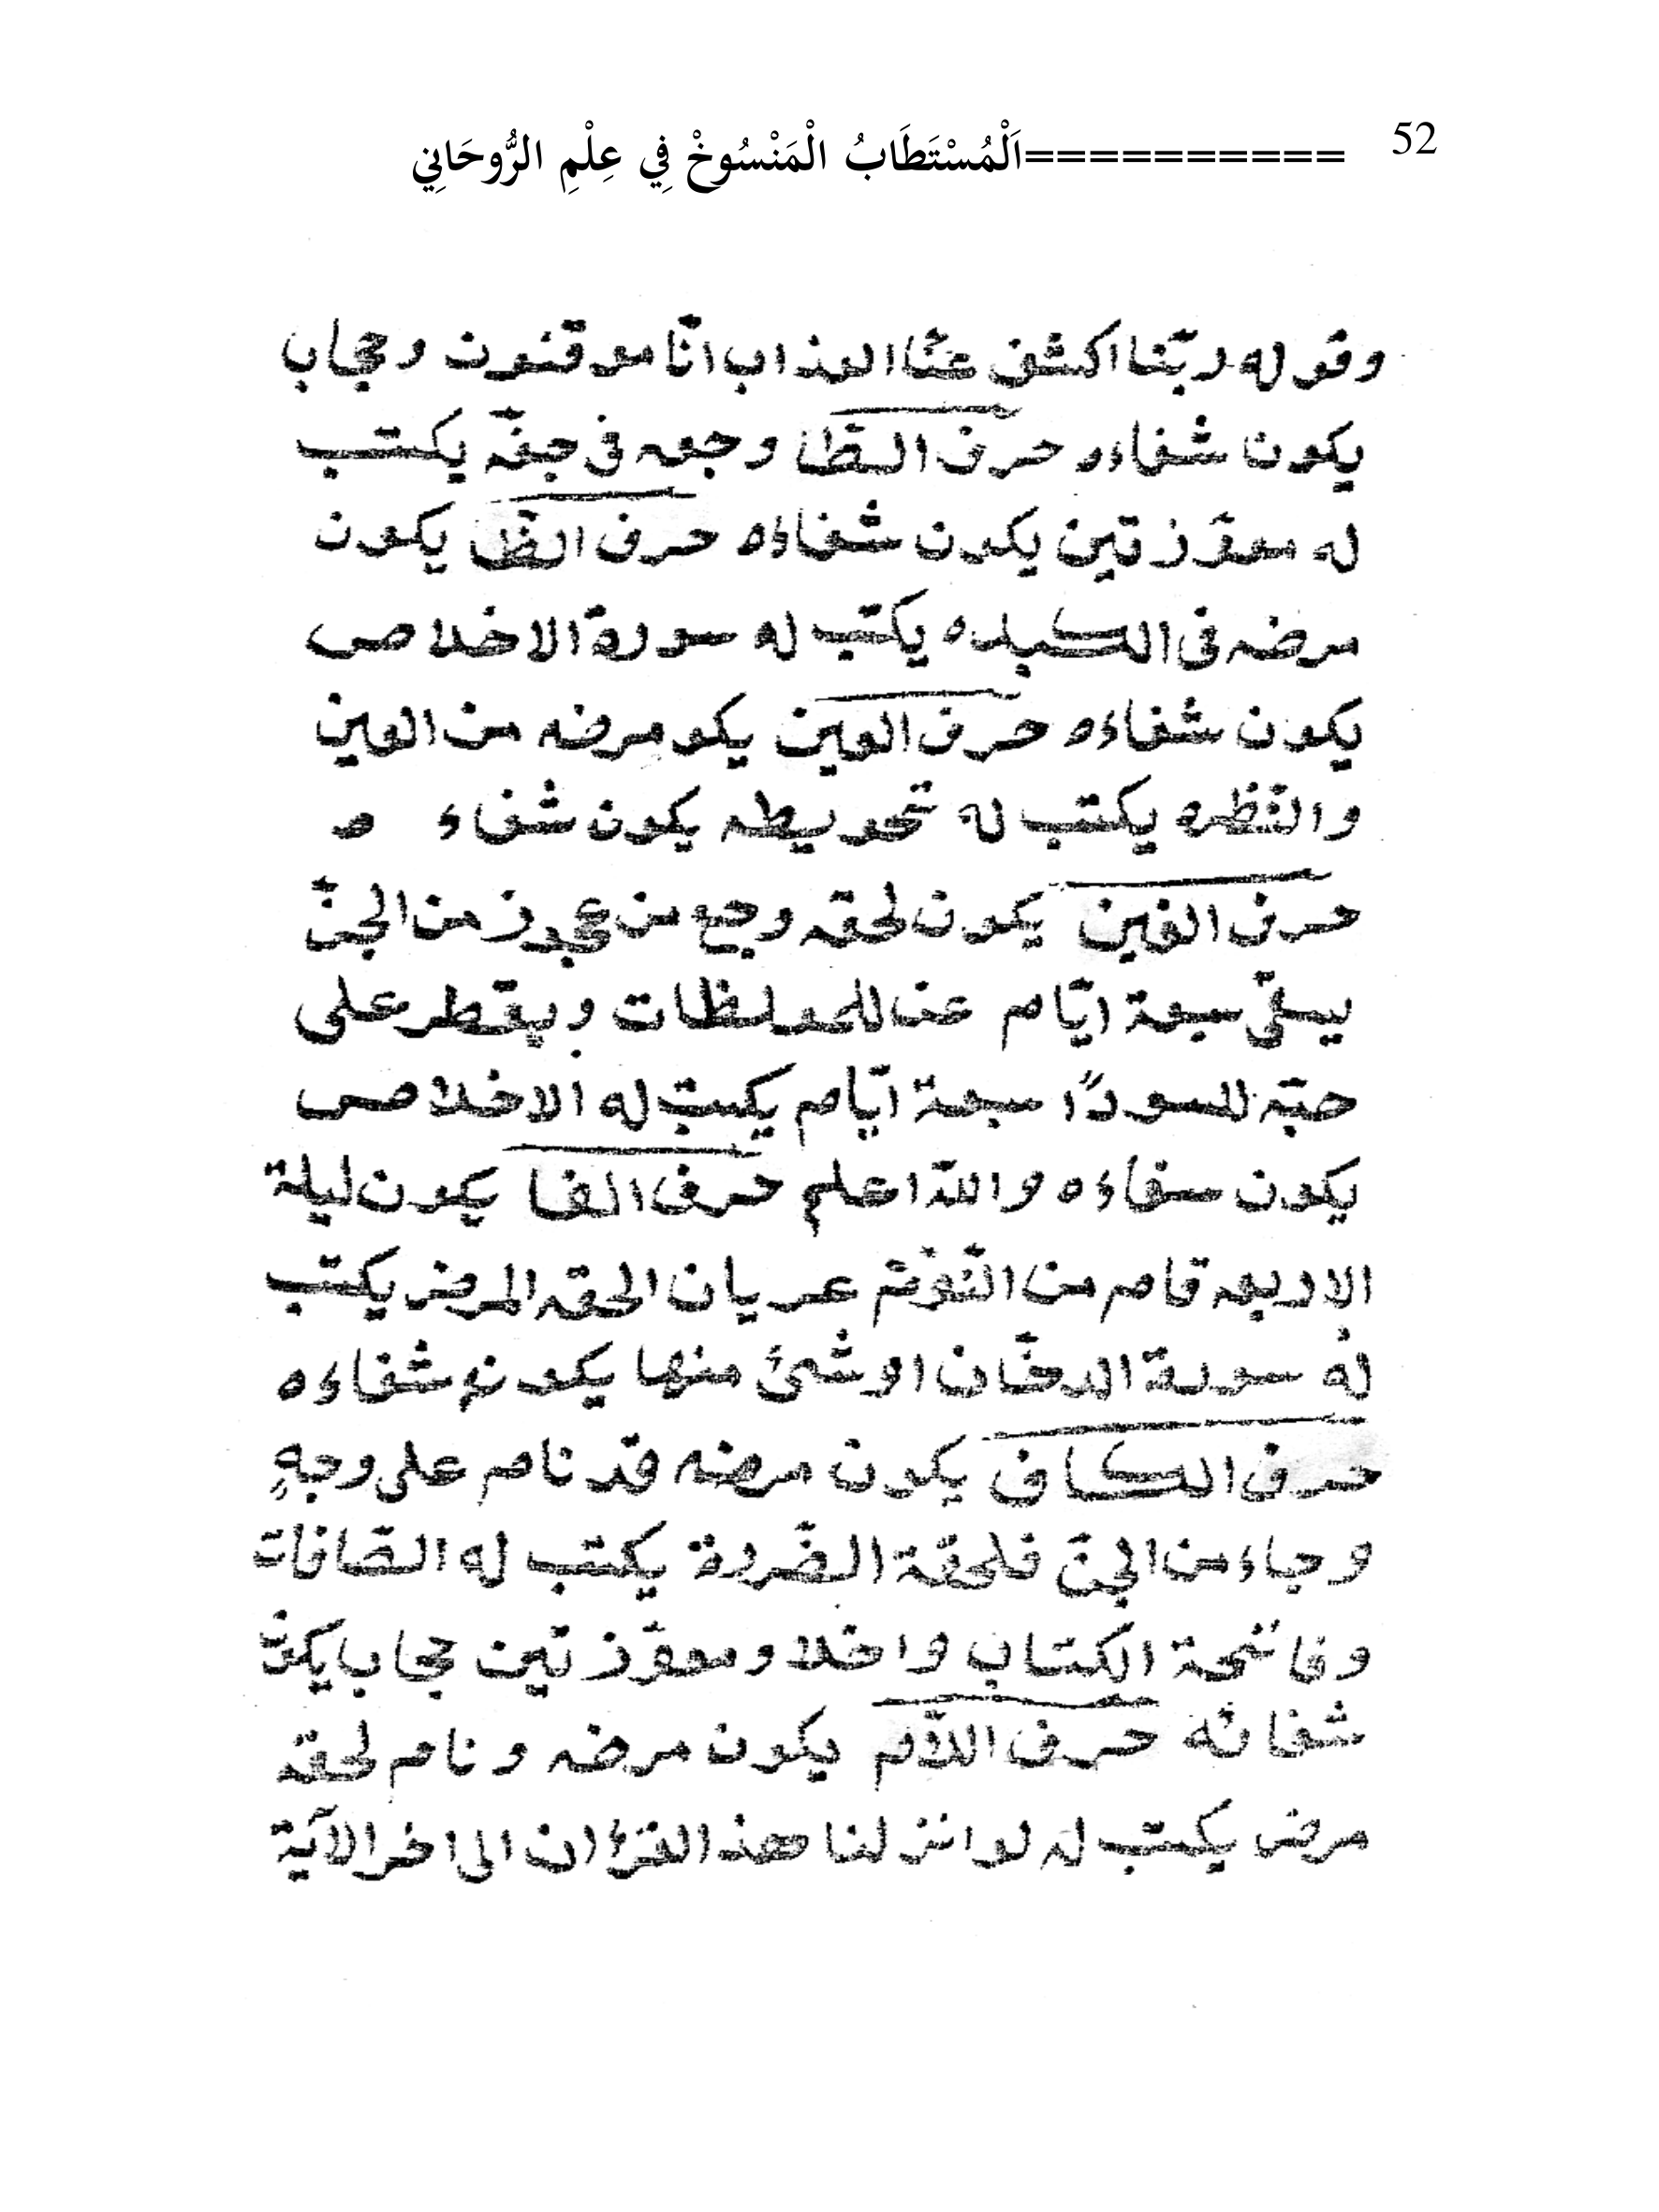 52 ==========اَلْمُسْتَطَابُ الْمَنْسُوخْ فِي عِلْمِ الرُّوحَانِي
وقوله ربّنا اكشف عنّا العذاب انّا موقنون وحجاب
يكون شفاءه حرف الطّا وجعه فى جبفّه يكتب
له معوّذتين يكون شفاءه حرف الظّا يكون
مرضه فى الكبده يكتب له سورة الاخلاص
يكون شفاءه حرف العين يكو مرضه من العين
والنّظره يكتب له تحويطه يكون شفاء ه
حرف الغين يكون لحقه وجع من عجوز من الجنّ
يسقى سبعة ايّام عن للمعلظات ويقطر على
حبّه للسودًا سبعة ايّام يكتب له الاخلاص
يكون سفاءه والله اعلم حرف الفا يكون ليلة
الاربعه قام من النّوم عريان الحقه المرض يكتب
له سورة الدخّان او شئ منها يكونه شفاءه
حرف الكاف يكون مرضه قد نام على وجهٍ
وجاء من الجنّ فلحقة الضّررة يكتب له الصّافات
وفاتحة الكتاب واخلا ومعوّذتين حجاب يكن
شفائه حرف اللّام يكون مرضه ونام لحقه
مرض يكتب له لو انزلنا هذ القرءان الى اخر الآية